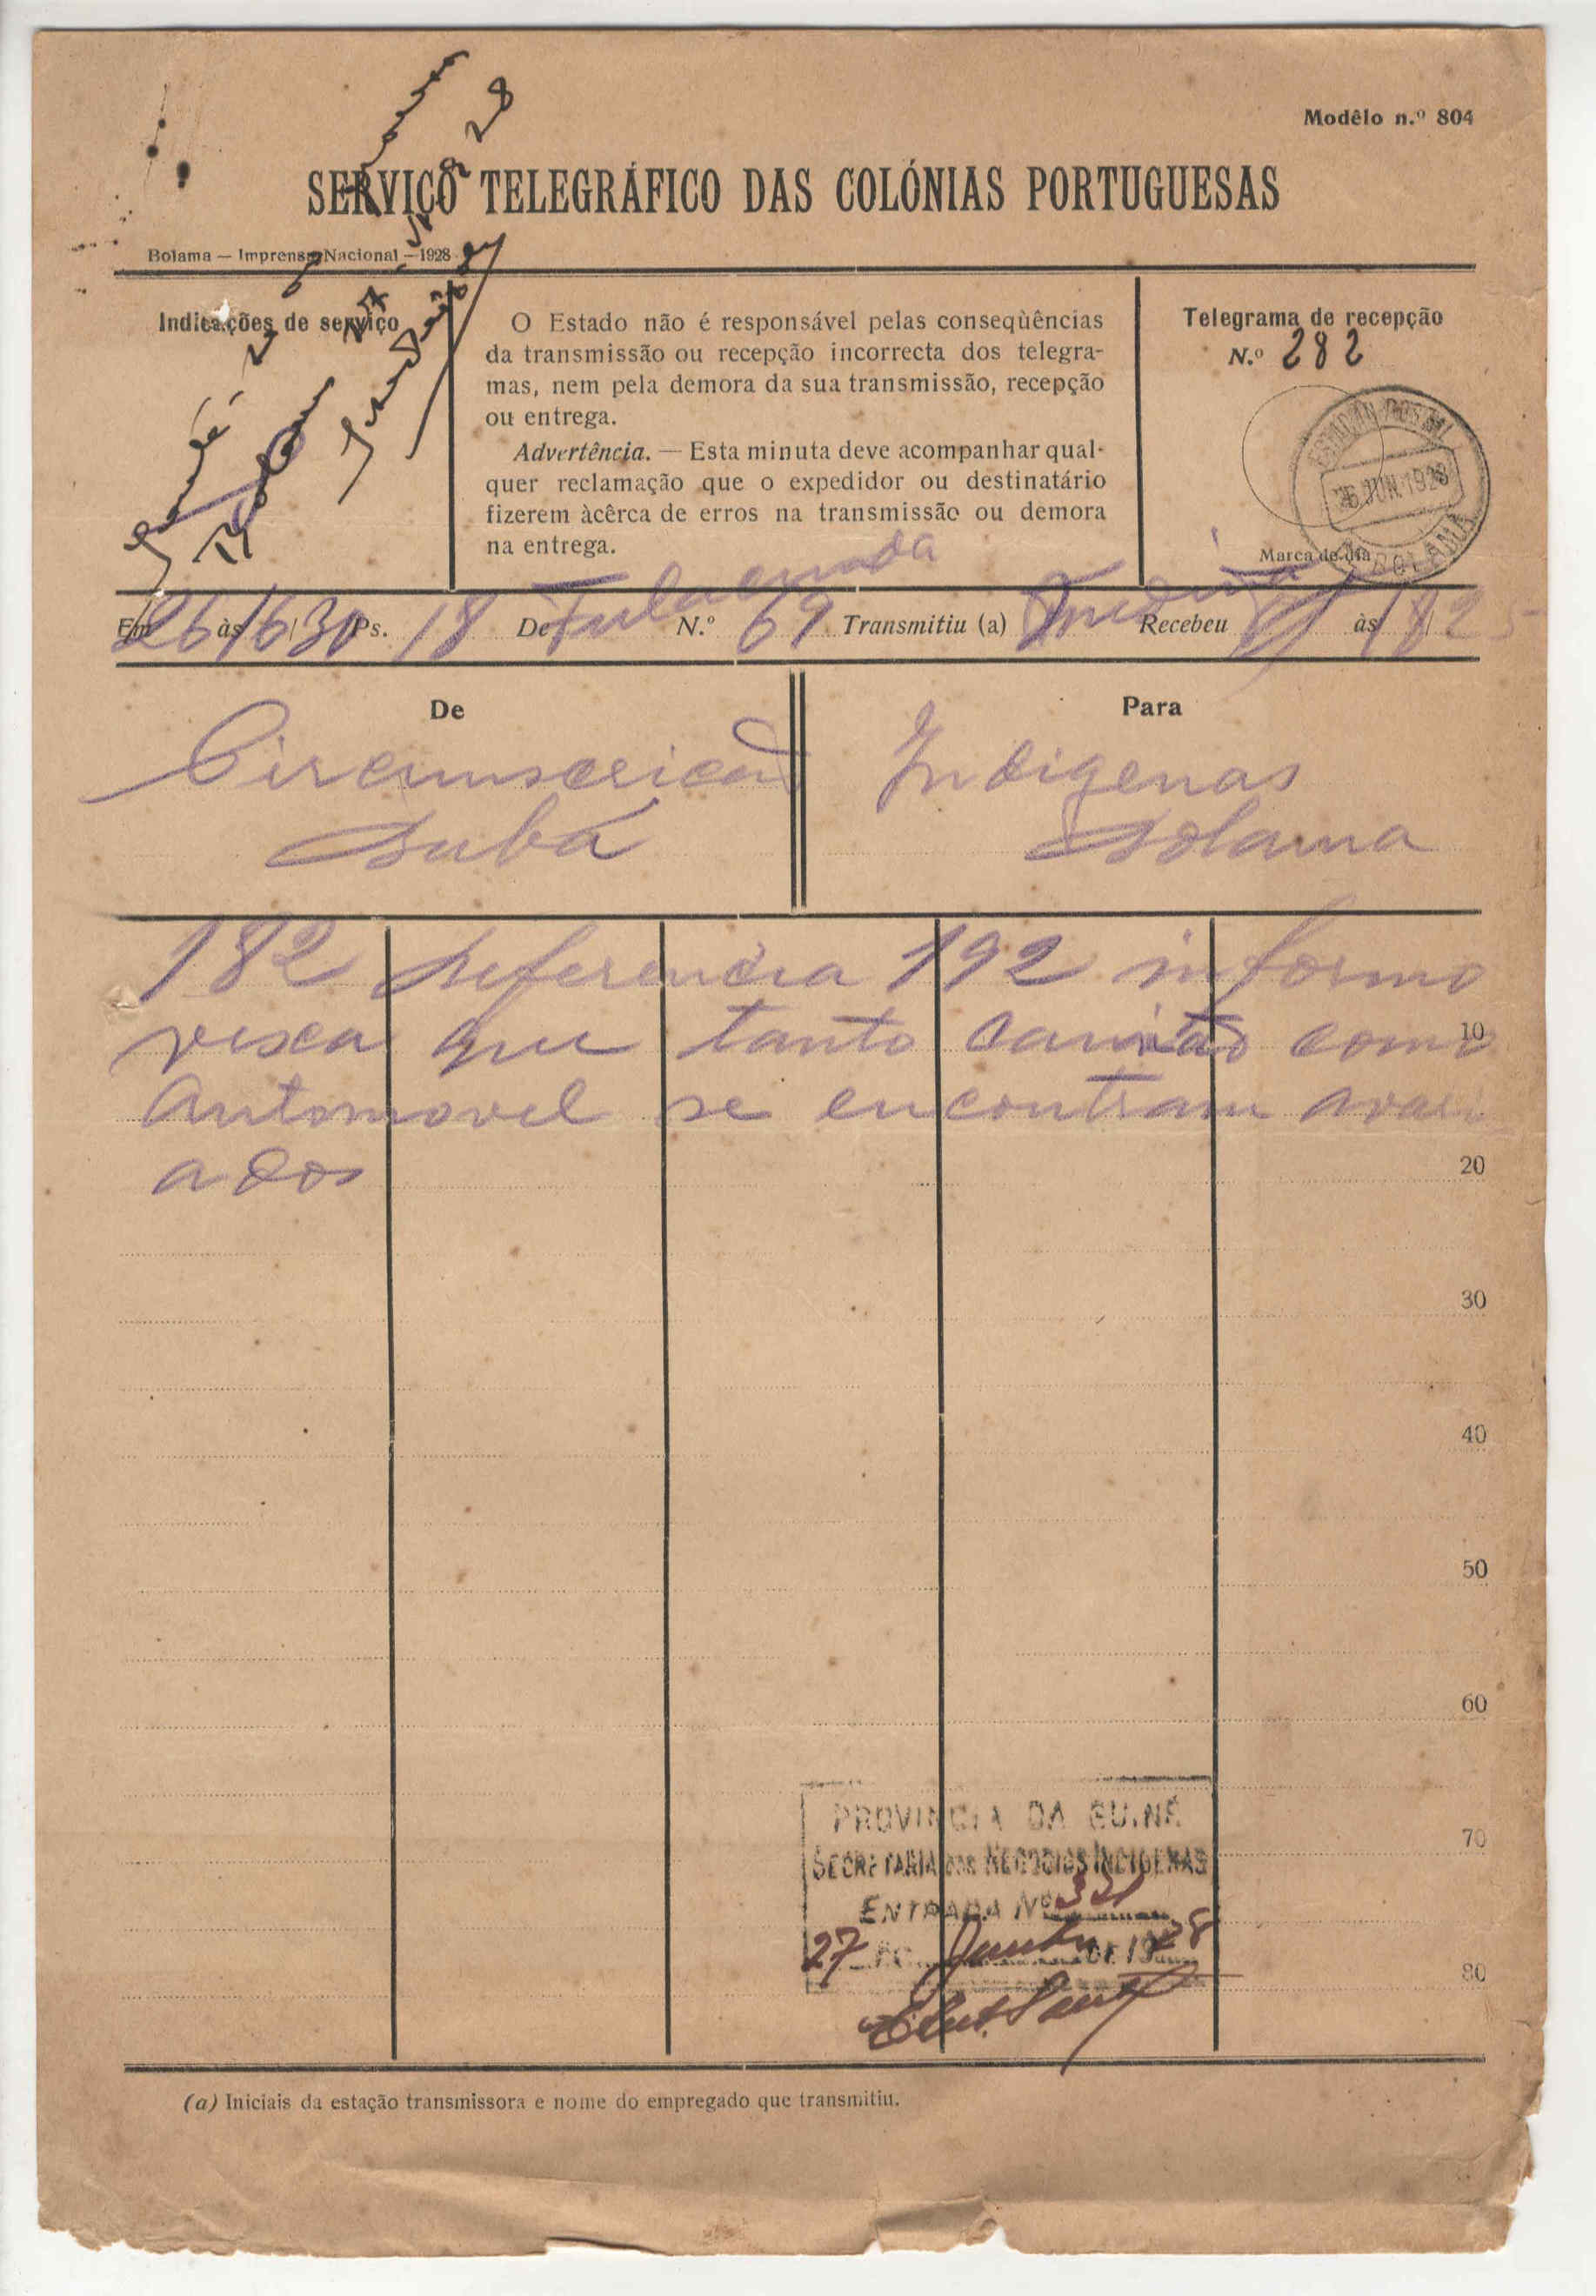 Modêlo n.º 804
SERVIÇO TELEGRÁFICO DAS COLÓNIAS PORTUGUESAS
Bolama — Imprensa Nacional — 1928
Indicações de serviço
O Estado não é responsável pelas conseqùências
da transmissão ou recepção incorrecta dos telegra-
mas, nem pela demora da sua transmissão, recepção
ou entrega.
Advertência. — Esta minuta deve acompanhar qual-
quer reclamação que o expedidor ou destinatário
fizerem àcêrca de erros na transmissão ou demora
na entrega.
Telegrama de recepção
N.º 282
26 JUN. 1928
BOLAMA
Marca do dia
Em 26 às 16/30 Ps. 18 De Fulacunda N.º 69 Transmitiu (a) Recebeu às 18 25
De
Circunscricao
Buba
Para
Indigenas
Bolama
182 Referencia 192 informo
vexa que tanto camião como
Automovel se encontram avari
ados
10
20
30
40
50
60
70
80
PROVINCIA DA GUINÉ
SECRETARIA DOS NEGOCIOS INDIGENAS
ENTRADA Nº 321
27 DE Junho DE 1928
(a) Iniciais da estação transmissora e nome do empregado que transmitiu.